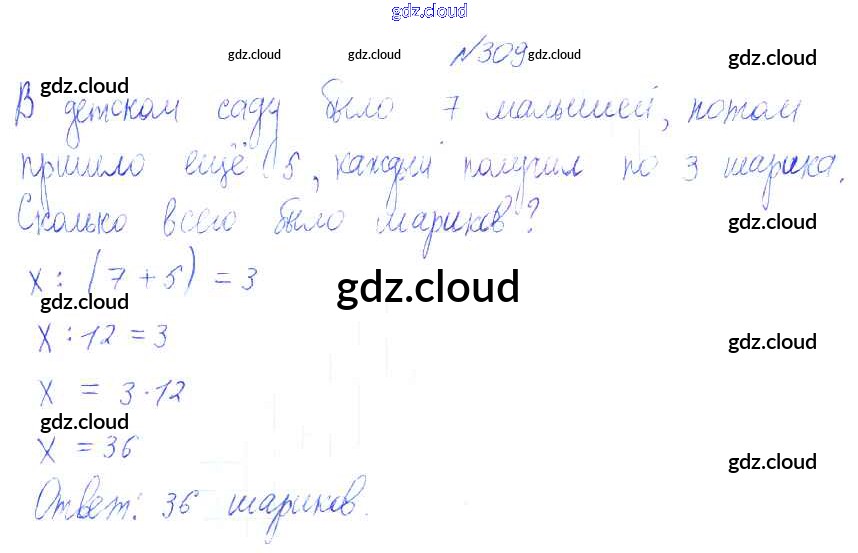 gdz.cloud
№309
gdz.cloud gdz.cloud gdz.cloud gdz.cloud
gdz.cloud
В детском саду было 7 малышей, потом
пришло ещё 5, каждый получил по 3 шарика.
gdz.cloud
Сколько всего было шариков?
gdz.cloud
x : (7 + 5) = 3
gdz.cloud
gdz.cloud
x : 12 = 3
gdz.cloud
x = 3 · 12
gdz.cloud
x = 36
gdz.cloud
Ответ: 36 шариков.